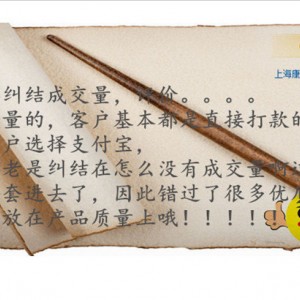 上海康
纠结成交量，评价。。。。
量的，客户基本都是直接打款的
户选择支付宝，
老是纠结在怎么没有成交量啊
套进去了，因此错过了很多优
放在产品质量上哦！！！！！